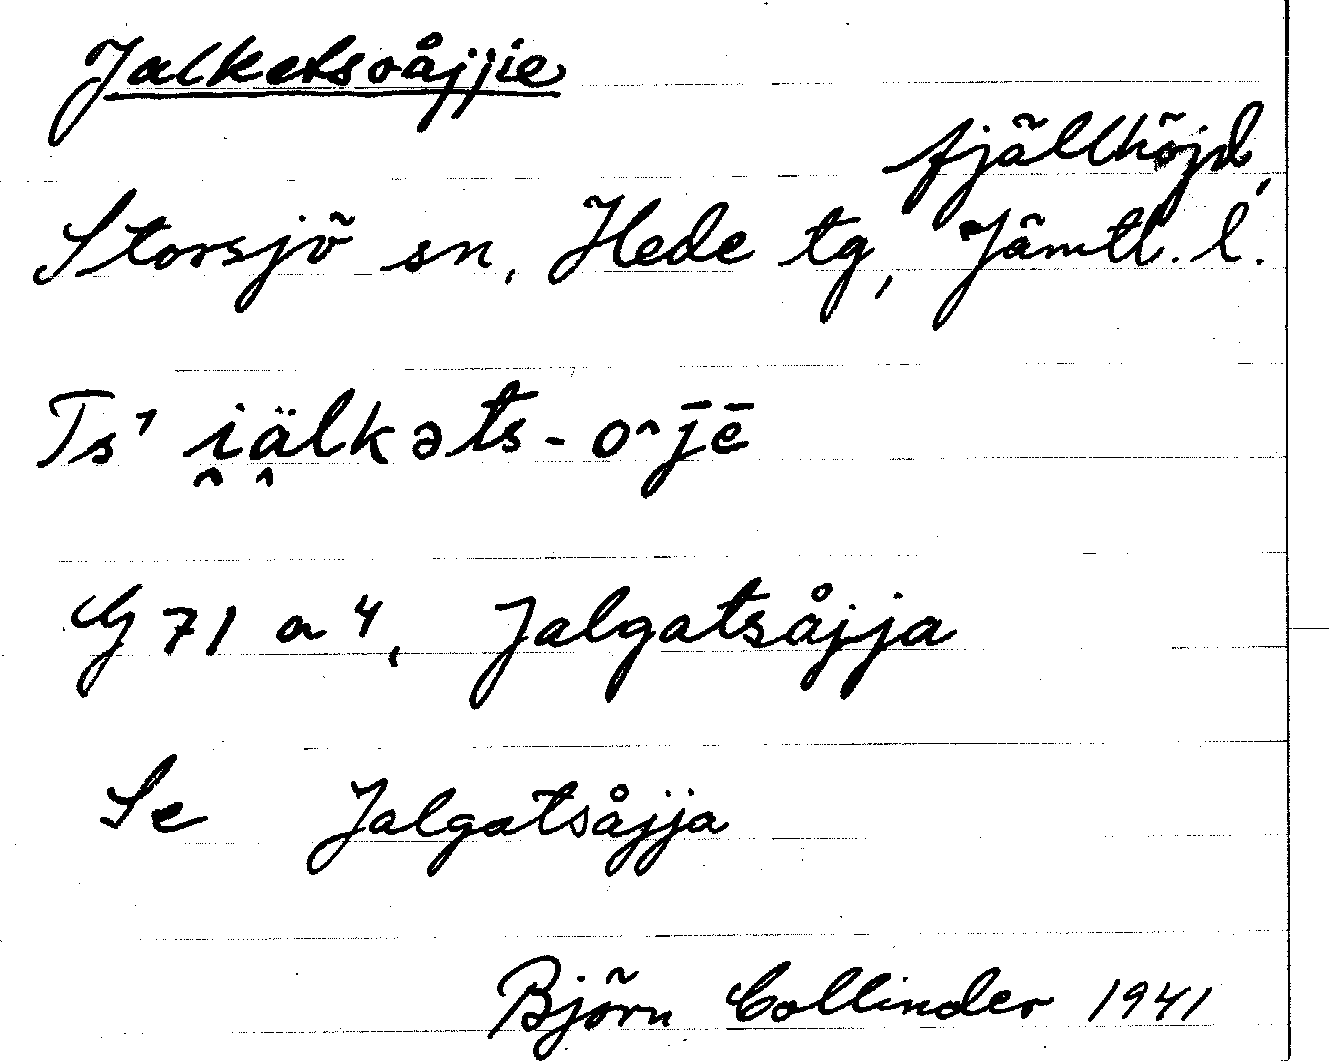 Jalketsoåjjie
fjällhöjd,
Storsjö sn, Hede tg, Jämtl. l.
Ts' i̯ä̭lkəts-oˆj̄ē
G 71 a 4, Jalgatsåjja
Se Jalgatsåjja
Björn Collinder 1941